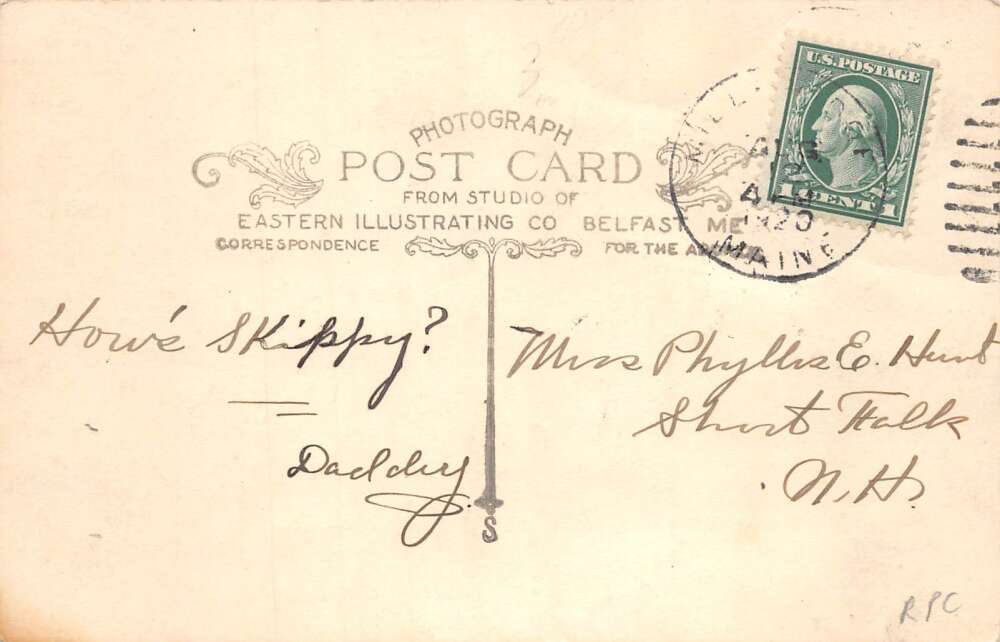 PHOTOGRAPH
POST CARD
FROM STUDIO OF
EASTERN ILLUSTRATING CO BELFAST ME
CORRESPONDENCE
FOR THE
U.S. POSTAGE
1 CENT 1
1920
MAINE
How's Skippy?
Daddy
Miss Phyllis E. Hunt
Short Falls
N.H.
RPC